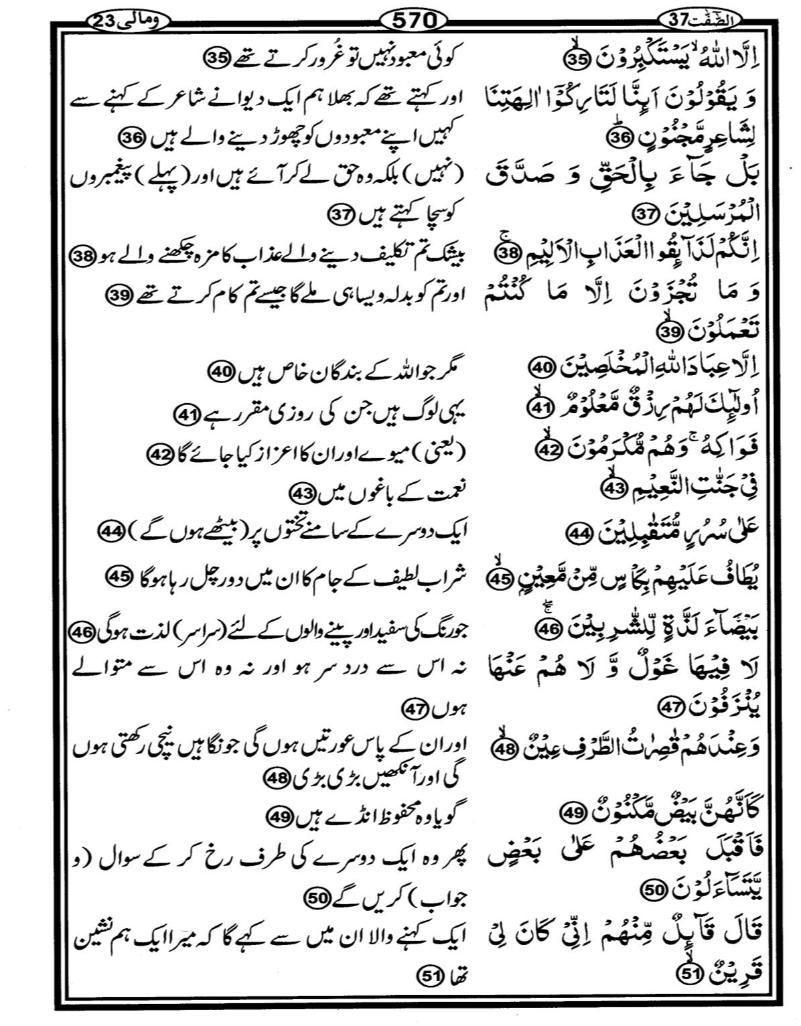 الصّٰفّٰت 37
570
ومالی 23
اِلَّا اللّٰهُ ۙ يَسْتَكْبِرُوْنَ ۙ ﴿35﴾ کوئی معبود نہیں تو غُرور کرتے تھے ﴿35﴾
وَ يَقُوْلُوْنَ اَئِنَّا لَتَارِكُوْۤا اٰلِهَتِنَا اور کہتے تھے کہ بھلا ہم ایک دیوانے شاعر کے کہنے سے
لِشَاعِرٍ مَّجْنُوْنٍ ؕ ﴿36﴾ کہیں اپنے معبودوں کو چھوڑ دینے والے ہیں ﴿36﴾
بَلْ جَآءَ بِالْحَقِّ وَ صَدَّقَ (نہیں) بلکہ وہ حق لے کر آئے ہیں اور (پہلے) پیغمبروں
الْمُرْسَلِيْنَ ﴿37﴾ کو سچا کہتے ہیں ﴿37﴾
اِنَّكُمْ لَذَآئِقُوا الْعَذَابِ الْاَلِيْمِ ۚ ﴿38﴾ بیشک تم تکلیف دینے والے عذاب کا مزہ چکھنے والے ہو ﴿38﴾
وَ مَا تُجْزَوْنَ اِلَّا مَا كُنْتُمْ اور تم کو بدلہ ویسا ہی ملے گا جیسے تم کام کرتے تھے ﴿39﴾
تَعْمَلُوْنَ ۙ ﴿39﴾
اِلَّا عِبَادَ اللّٰهِ الْمُخْلَصِيْنَ ﴿40﴾ مگر جو اللہ کے بندگان خاص ہیں ﴿40﴾
اُولٰٓئِكَ لَهُمْ رِزْقٌ مَّعْلُوْمٌ ۙ ﴿41﴾ یہی لوگ ہیں جن کی روزی مقرر ہے ﴿41﴾
فَوَاكِهُ ۚ وَهُمْ مُّكْرَمُوْنَ ۙ ﴿42﴾ (یعنی) میوے اور ان کا اعزاز کیا جائے گا ﴿42﴾
فِيْ جَنّٰتِ النَّعِيْمِ ۙ ﴿43﴾ نعمت کے باغوں میں ﴿43﴾
عَلٰى سُرُرٍ مُّتَقٰبِلِيْنَ ﴿44﴾ ایک دوسرے کے سامنے تختوں پر (بیٹھے ہوں گے) ﴿44﴾
يُطَافُ عَلَيْهِمْ بِكَاْسٍ مِّنْ مَّعِيْنٍۭ ۙ ﴿45﴾ شراب لطیف کے جام کا ان میں دور چل رہا ہوگا ﴿45﴾
بَيْضَآءَ لَذَّةٍ لِّلشّٰرِبِيْنَ ۚۖ ﴿46﴾ جو رنگ کی سفید اور پینے والوں کے لئے (سراسر) لذت ہوگی ﴿46﴾
لَا فِيْهَا غَوْلٌ وَّ لَا هُمْ عَنْهَا نہ اس سے درد سر ہو اور نہ وہ اس سے متوالے
يُنْزَفُوْنَ ﴿47﴾ ہوں ﴿47﴾
وَعِنْدَهُمْ قٰصِرٰتُ الطَّرْفِ عِيْنٌ ۙ ﴿48﴾ اور ان کے پاس عورتیں ہوں گی جو نگاہیں نیچی رکھتی ہوں
گی اور آنکھیں بڑی بڑی ﴿48﴾
كَاَنَّهُنَّ بَيْضٌ مَّكْنُوْنٌ ﴿49﴾ گویا وہ محفوظ انڈے ہیں ﴿49﴾
فَاَقْبَلَ بَعْضُهُمْ عَلٰى بَعْضٍ پھر وہ ایک دوسرے کی طرف رخ کر کے سوال (و
يَّتَسَآءَلُوْنَ ﴿50﴾ جواب) کریں گے ﴿50﴾
قَالَ قَآئِلٌ مِّنْهُمْ اِنِّيْ كَانَ لِيْ ایک کہنے والا ان میں سے کہے گا کہ میرا ایک ہم نشین
قَرِيْنٌ ۙ ﴿51﴾ تھا ﴿51﴾